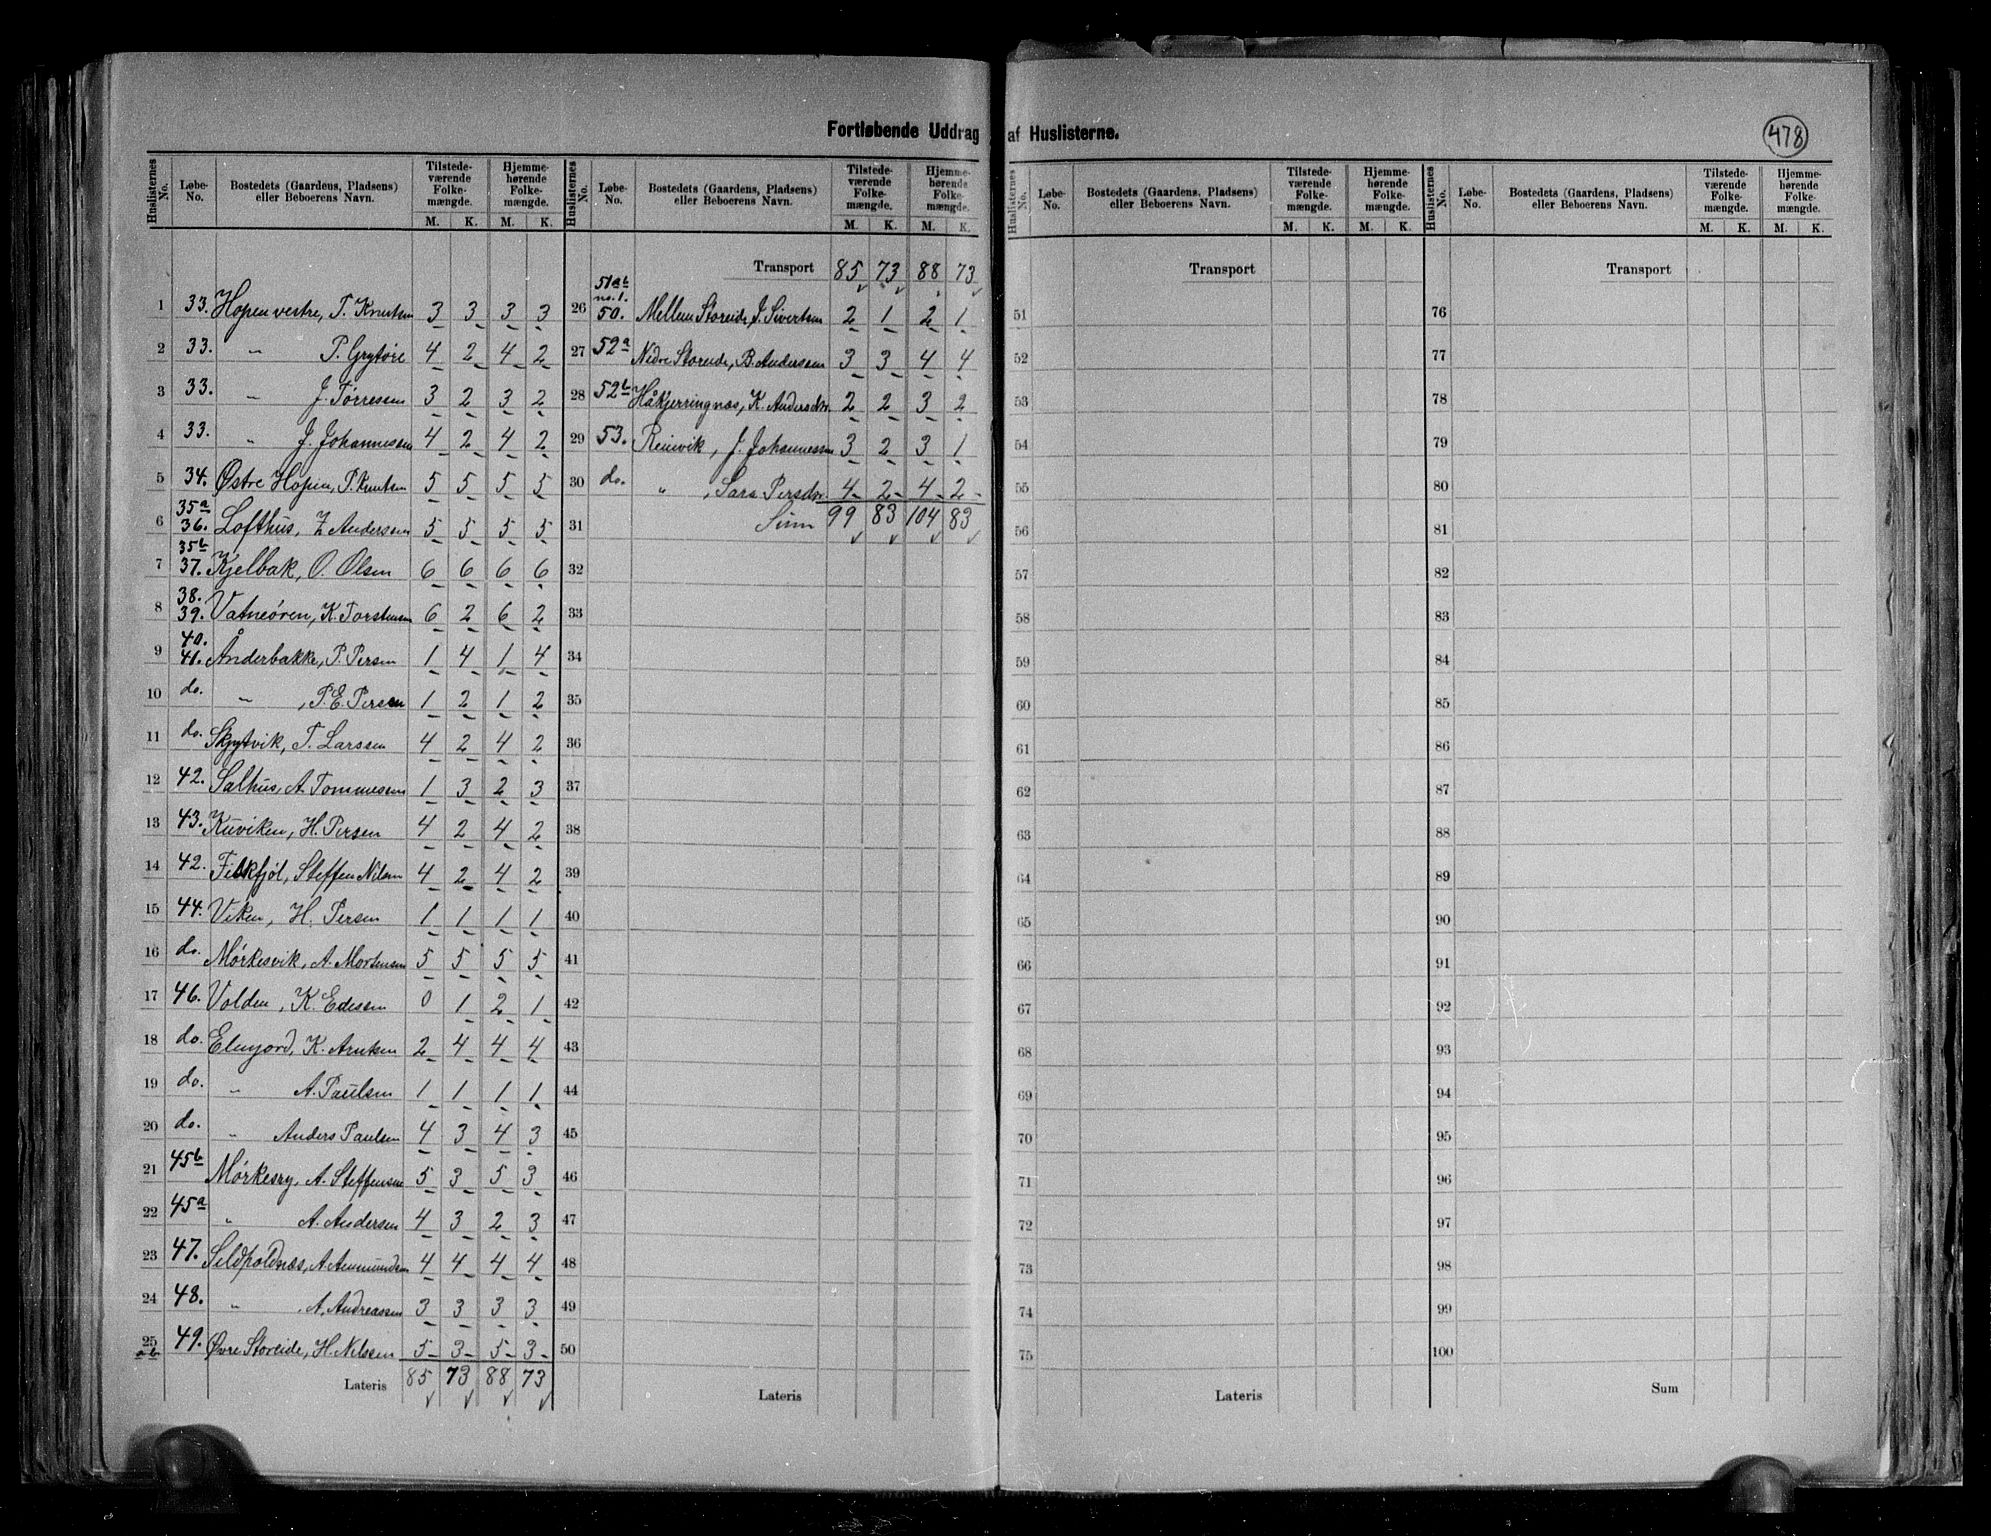 Fortløbende Uddrag af Huslisterne.
478
Huslisternes No. Løbe-No. Bostedets (Gaardens, Pladsens) eller Beboerens Navn. Tilstedeværende Folkemængde. M. K. Hjemmehørende Folkemængde. M. K.
1 33. Hopen vestre, T. Knutsen 3 3 3 3
2 33. " P. Grytøre 4 2 4 2
3 33. " J. Torressen 3 2 3 2
4 33. " J. Johannessen 4 2 4 2
5 34. Østre Hopen, P. Knutsen 5 5 5 5
6 35a 36. Lofthus, Z Anderssen 5 5 5 5
7 35b 37. Kjelbak, O. Olsen 6 6 6 6
8 38. 39. Vatneøren, K. Torstensen 6 2 6 2
9 40. 41. Ånderbakke, P. Persen 1 4 1 4
10 do. " , P. E. Persen 1 2 1 2
11 do. Skjytvik, T. Larssen 4 2 4 2
12 42. Salhus, A. Tommessen 1 3 2 3
13 43. Kuviken, H. Persen 4 2 4 2
14 42. Fiskfjøl, Steffen Nilsen 4 2 4 2
15 44. Viken, H. Persen 1 1 1 1
16 do. Mørkesvik, A. Mortensen 5 5 5 5
17 46. Volden, K. Edessen 0 1 2 1
18 do. Elmjord, K. Arntsen 2 4 4 4
19 do. " A. Paulsen 1 1 1 1
20 do. " Anders Paulsen 4 3 4 3
21 45b Mørkesry, A. Steffensen 5 3 5 3
22 45a " A. Andersen 4 3 2 3
23 47. Sildpoldnæs, A. Ammundsen 4 4 4 4
24 48. " , A. Andreassen 3 3 3 3
25 ab 49. Øvre Storeide, H. Nilssen 5 3 5 3
Lateris 85 73 88 73
Huslisternes No. Løbe-No. Bostedets (Gaardens, Pladsens) eller Beboerens Navn. Tilstedeværende Folkemængde. M. K. Hjemmehørende Folkemængde. M. K.
Transport 85 73 88 73
26 51ab no. 1. 50. Mellem Storeide, J. Sivertsen 2 1 2 1
27 52a Nedre Storeide, B. Anderssen 3 3 4 4
28 52b Håkjerringnæs, K. Andersdtr. 2 2 3 2
29 53. Reinvik, J. Johannessen 3 2 3 1
30 do. " , Sara Persdtr. 4 2 4 2
31 Sum 99 83 104 83
32
33
34
35
36
37
38
39
40
41
42
43
44
45
46
47
48
49
50
Lateris
Huslisternes No. Løbe-No. Bostedets (Gaardens, Pladsens) eller Beboerens Navn. Tilstedeværende Folkemængde. M. K. Hjemmehørende Folkemængde. M. K.
Transport
51
52
53
54
55
56
57
58
59
60
61
62
63
64
65
66
67
68
69
70
71
72
73
74
75
Lateris
Huslisternes No. Løbe-No. Bostedets (Gaardens, Pladsens) eller Beboerens Navn. Tilstedeværende Folkemængde. M. K. Hjemmehørende Folkemængde. M. K.
Transport
76
77
78
79
80
81
82
83
84
85
86
87
88
89
90
91
92
93
94
95
96
97
98
99
100
Sum